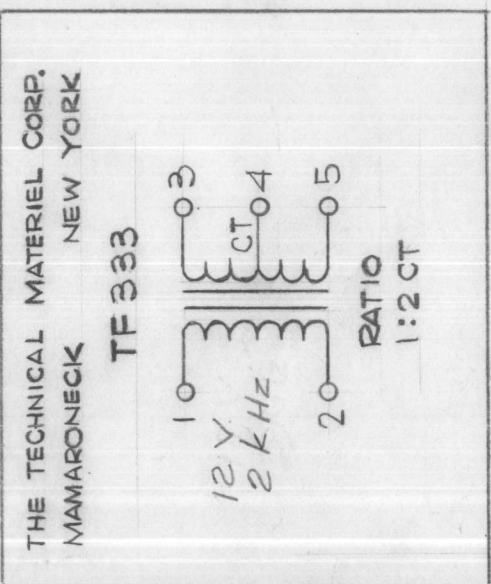 THE TECHNICAL MATERIEL CORP.
MAMARONECK NEW YORK
TF333
1
3
12 V
2 kHz
CT
4
2
5
RATIO
1:2 CT